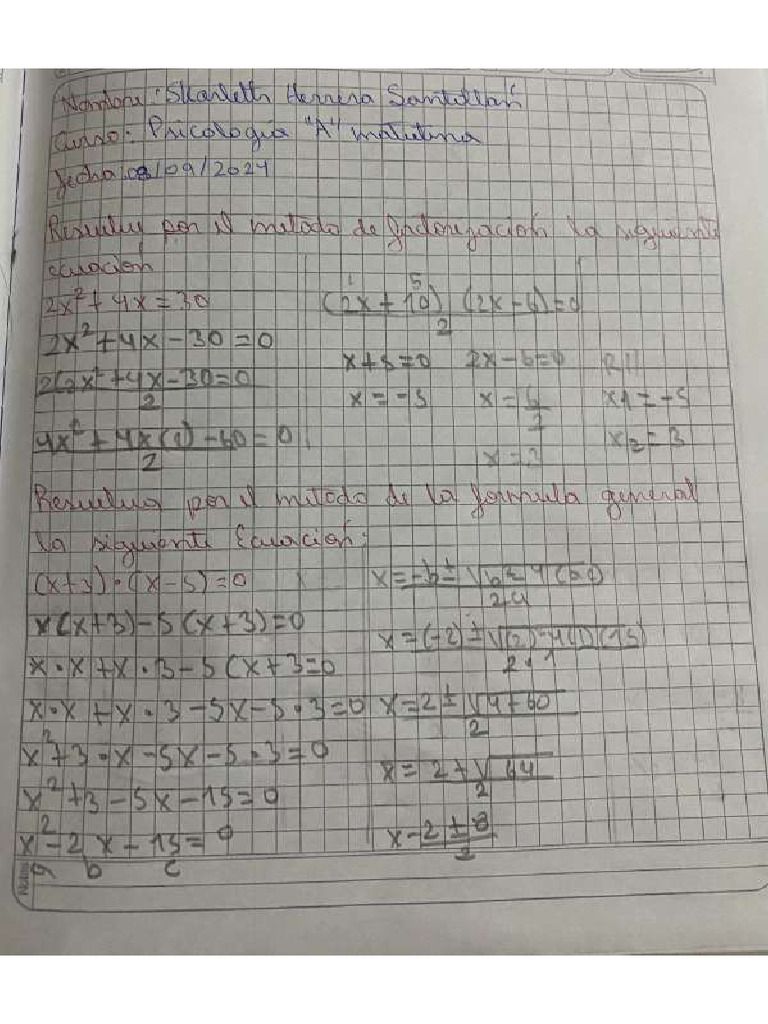 Nombre: Skarleth Herrera Santillán
Curso: Psicología "A" matutina
fecha 09/2024
Resuelva por el metodo de factorización la siguiente
ecuación
2x² + 4x = 30
2x² + 4x - 30 = 0
2(2x² + 4x - 30 = 0
2
4x² + 4x(2) - 60 = 0
2
1 5
(2x + 10) (2x - 6) = 0
2
x + 5 = 0 2x - 6 = 0 R//
x = -5 x = 6 x1 = -5
2
x = 3 x2 = 3
Resuelva por el metodo de la formula general
la siguiente Ecuación:
(x+3) • (x - 5) = 0
x(x+3) - 5(x+3) = 0
x • x + x • 3 - 5(x + 3 = 0
x • x + x • 3 - 5x - 5 • 3 = 0
x² + 3 • x - 5x - 5 • 3 = 0
x² + 3 - 5x - 15 = 0
x² - 2x - 15 = 0
a b c
x = -b ± √b² - 4
2a
x = (-2) ± √(2) - 4(1)(15)
2 • 1
x = 2 ± √4 + 60
2
x = 2 + √64
2
x - 2 ± 8
2
Notas